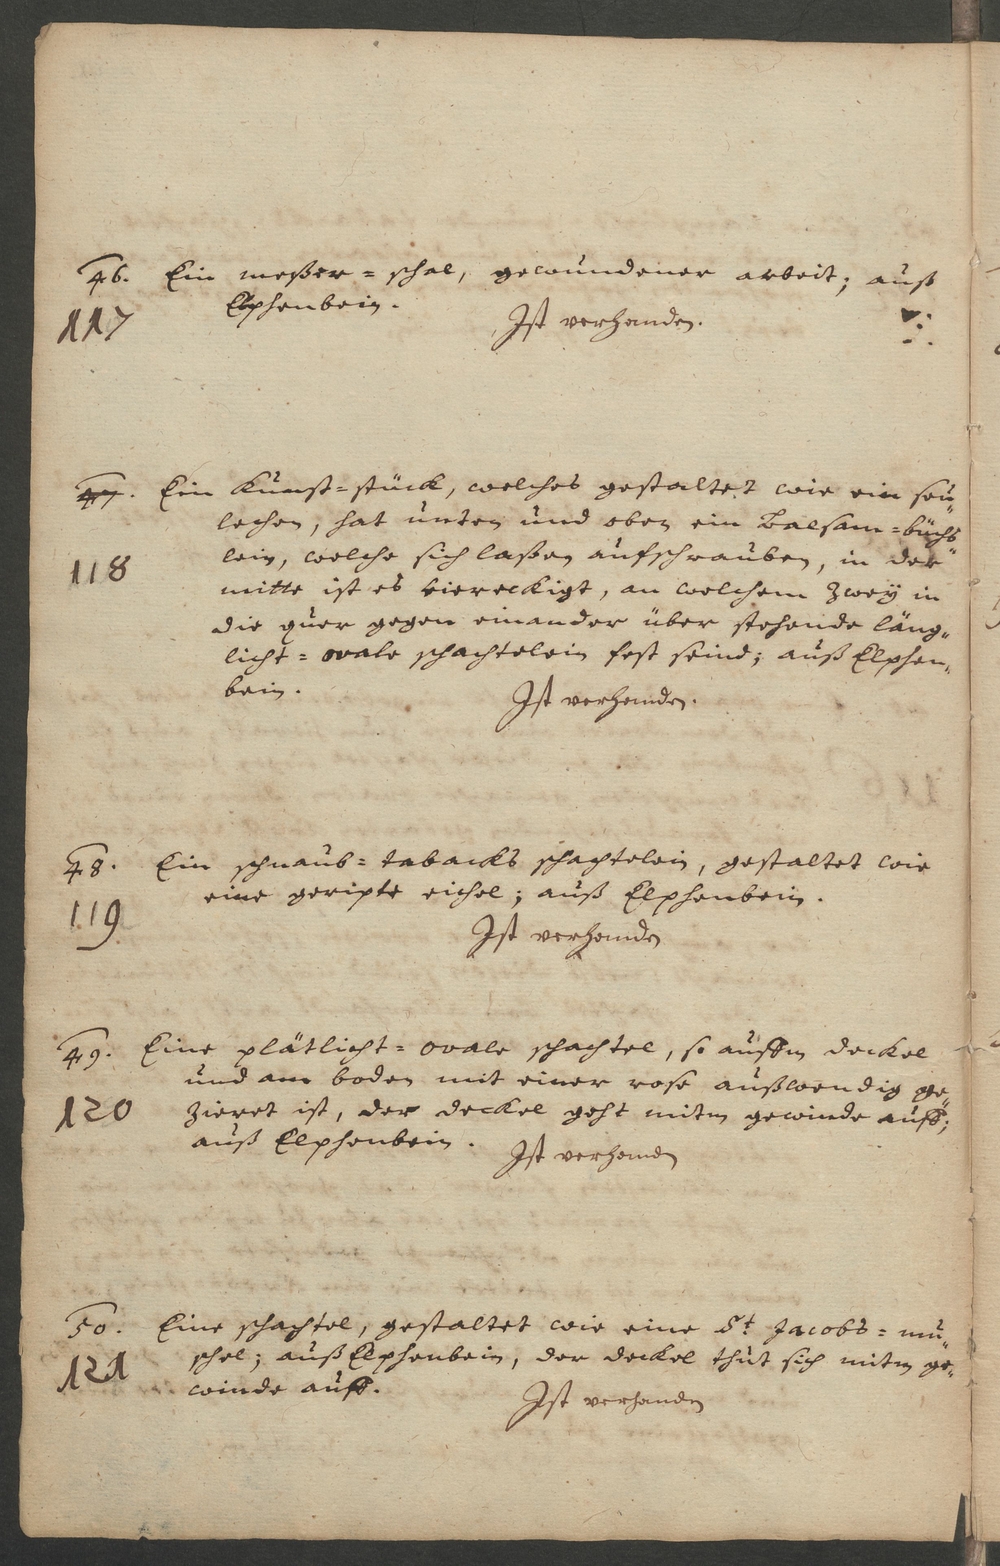 46. Ein meßer=schal, gewundener arbeit; auß
Elphenbein.
117
Ist verhanden.
47. Ein Kunst=stück, welches gestaltet wie ein seu„
lechen, hat unten und oben ein Balsam=büchs„
lein, welche sich laßen aufschrauben, in der
118
mitte ist es viereckigt, an welchem zweÿ in
die quer gegen einander über stehende läng„
licht=ovale schachtelein fest seind; auß Elphen„
bein.
Ist verhanden.
48. Ein schnaub=tabacks schachtelein, gestaltet wie
eine geripte eichel; auß Elphenbein.
119
Ist verhanden
49. Eine plätlicht=ovale schachtel, so auffm deckel
und am boden mit einer rose außwendig ge„
120
zieret ist, der deckel geht mitm gewinde auff;
auß Elphenbein.
Ist verhanden
50. Eine schachtel, gestaltet wie eine St Jacobs=mu„
schel; auß Elphenbein, der deckel thut sich mitm ge„
121
winde auff.
Ist verhanden